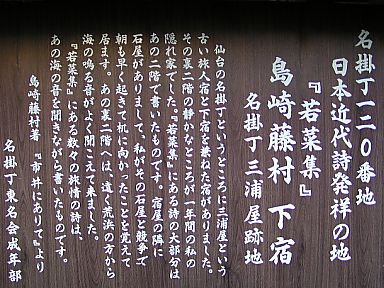 名掛丁一二〇番地
日本近代詩発祥の地
『若菜集』
島崎藤村 下宿
名掛丁三浦屋跡地
仙台の名掛丁というところに三浦屋という
古い旅人宿と下宿を兼ねた宿がありました。
その裏二階の静かなところが一年間の私の
隠れ家でした。『若菜集』にある詩の大部分は
あの二階で書いたものです。宿屋の隣に
石屋がありまして、私がその石屋と競争で
朝も早く起きて机に向かったことを覚えて
居ます。あの裏二階へは、遠く荒浜の方から
海の鳴る音がよく聞こえて来ました。
『若菜集』にある数々の旅情の詩は、
あの海の音を聞きながら書いたものです。
島崎藤村著 『市井にありて』より
名掛丁東名会成年部